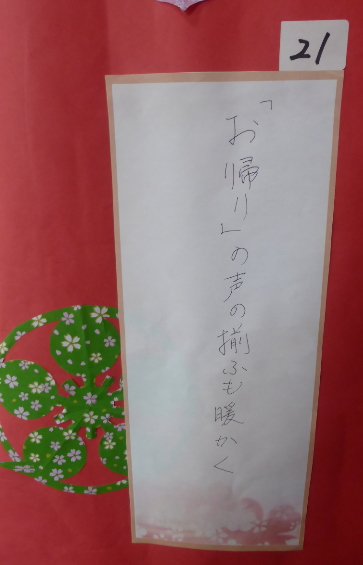 21
「お帰り」の声の揃ふも暖かく